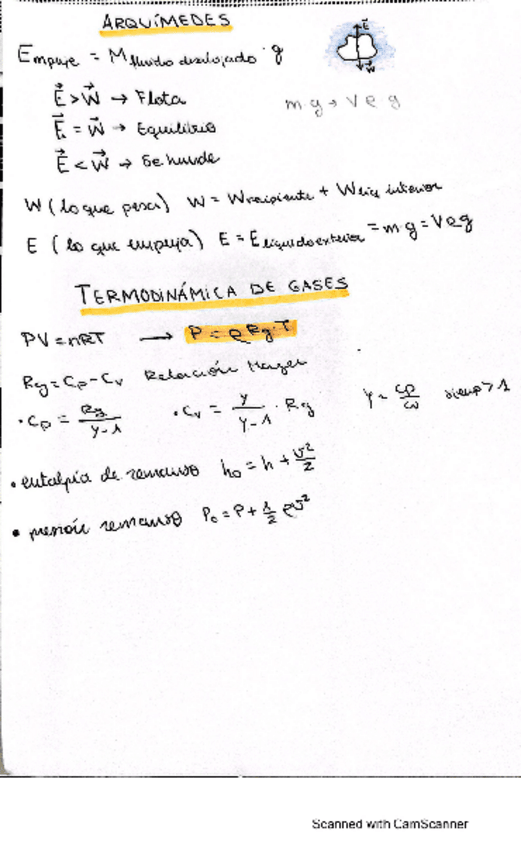 ARQUÍMEDES
E
W
Empuje = M fluido desalojado · g
E > W → Flota
mg → V ρ g
E = W → Equilibrio
E < W → Se hunde
W (lo que pesa) W = W recipiente + W liq interior
E (lo que empuja) E = E liquido exterior = m·g = Vρg
TERMODINÁMICA DE GASES
PV = nRT → P = ρ Rg·T
Rg = Cp - Cv Relación Mayer
· Cp = Rg/γ-1 · Cv = γ/γ-1 · Rg γ = Cp/Cv siemp > 1
• entalpía de remanso h₀ = h + v²/2
• presión remanso P₀ = P + 1/2 ρv²
Scanned with CamScanner